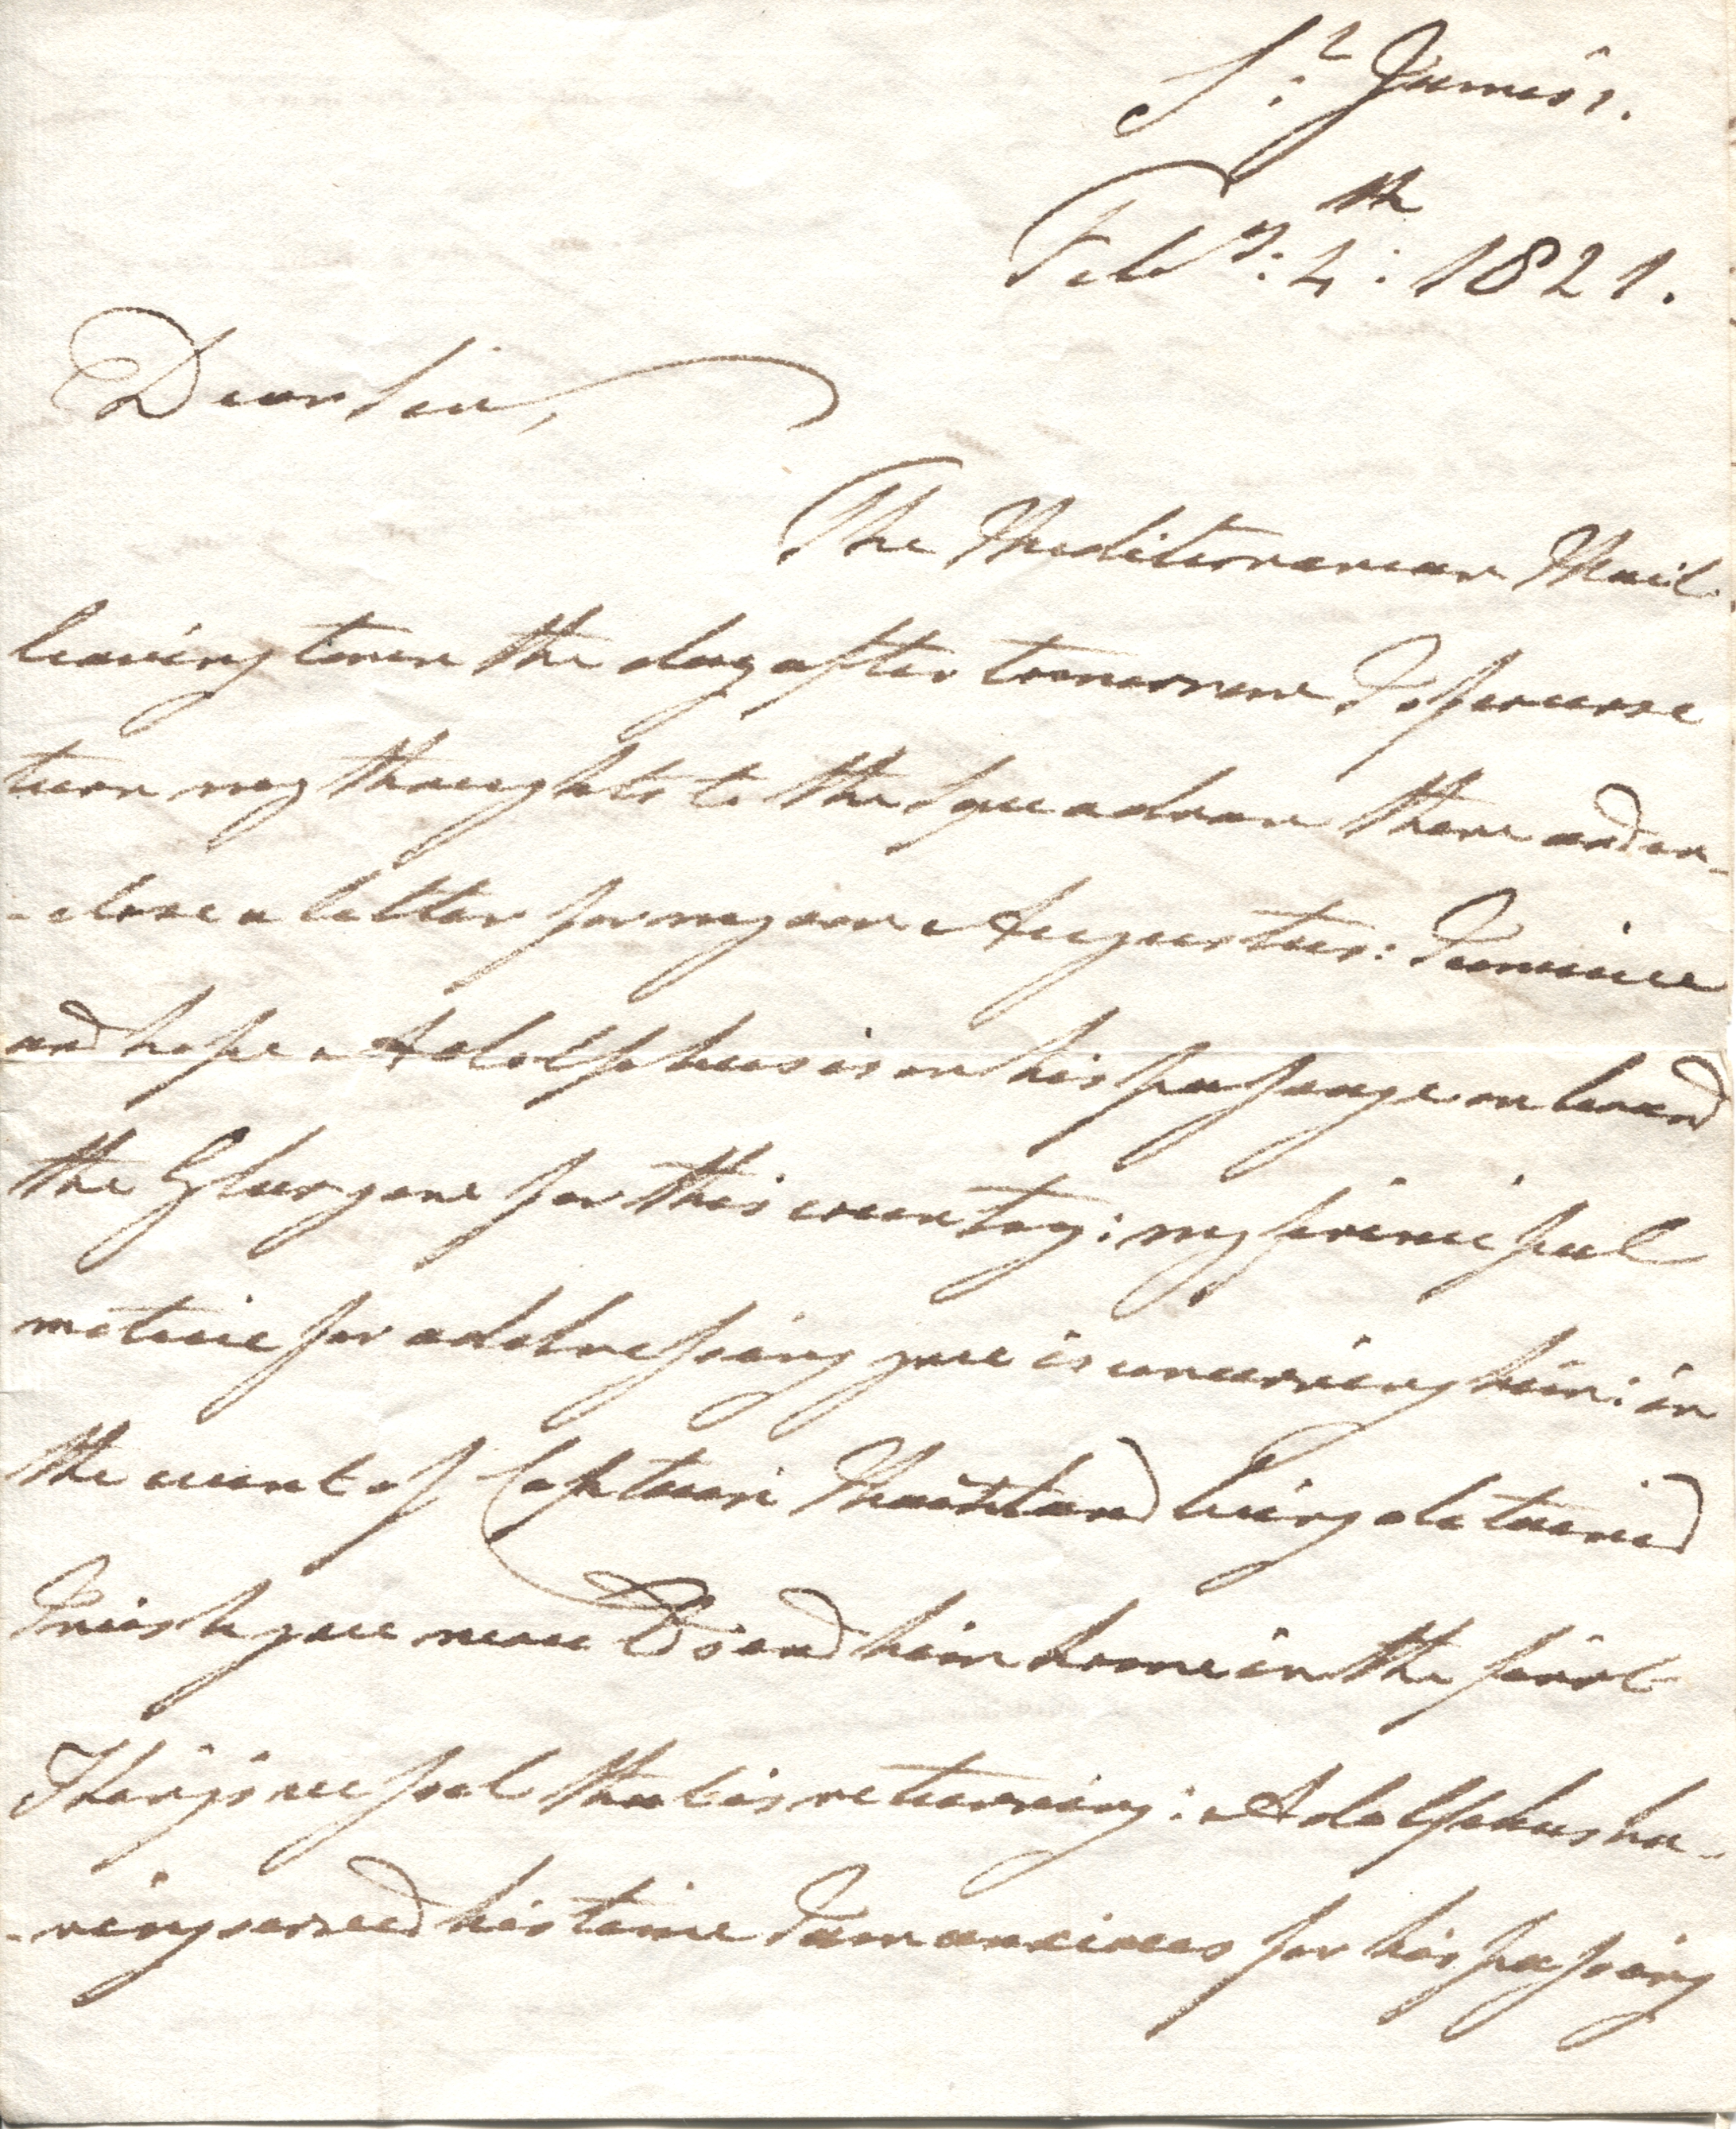 St James's.
Feby: 4th: 1821.
Dear Sir,
The Mediterranean Mail
leaving town the day after tomorrow I of course
turn my thoughts to the Squadron there and en-
-close a letter for my son Augustus:
and hope Adolphus is on his passage on board
the Glasgow for this country: my principal
motive for addressing you is concerning him: in
the event of Captain Maitland being detained
I wish you would send him home in the first
Thing's  that is returning: Adolphus ha-
-ving served his time I am anxious for his passing